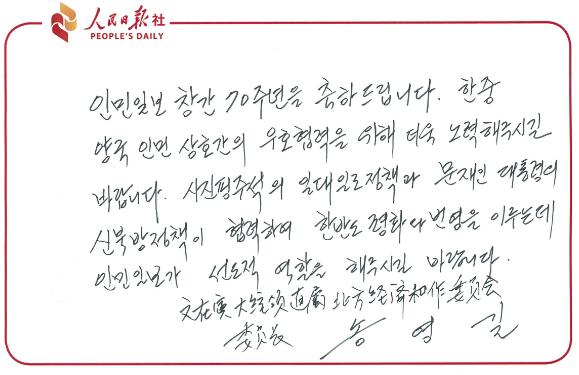 人民日报社
PEOPLE'S DAILY
인민일보 창간 70주년을 축하드립니다. 한중
양국 인민 상호간의 우호협력을 위해 더욱 노력해주시길
바랍니다. 시진핑주석의 일대일로정책과 문재인 대통령의
신북방정책이 협력하여 한반도 평화와 번영을 이루는데
인민일보가 선도적 역할을 해주시길 바랍니다.
文在寅大统领直属北方经济和作委员会
委员长 송영길